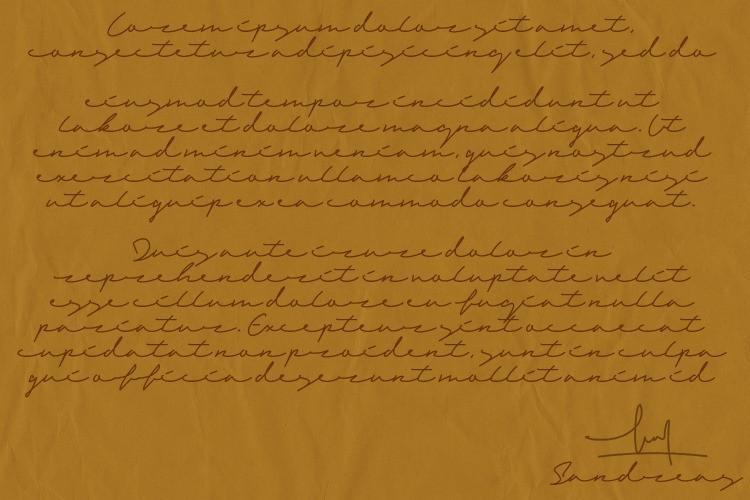 Lorem ipsum dolor sit amet,
consectetur adipisicing elit, sed do
eiusmod tempor incididunt ut
labore et dolore magna aliqua. Ut
enim ad minim veniam, quis nostrud
exercitation ullamco laboris nisi
ut aliquip ex ea commodo consequat.
Duis aute irure dolor in
reprehenderit in voluptate velit
esse cillum dolore eu fugiat nulla
pariatur. Excepteur sint occaecat
cupidatat non proident, sunt in culpa
qui officia deserunt mollit anim id
Sandreas